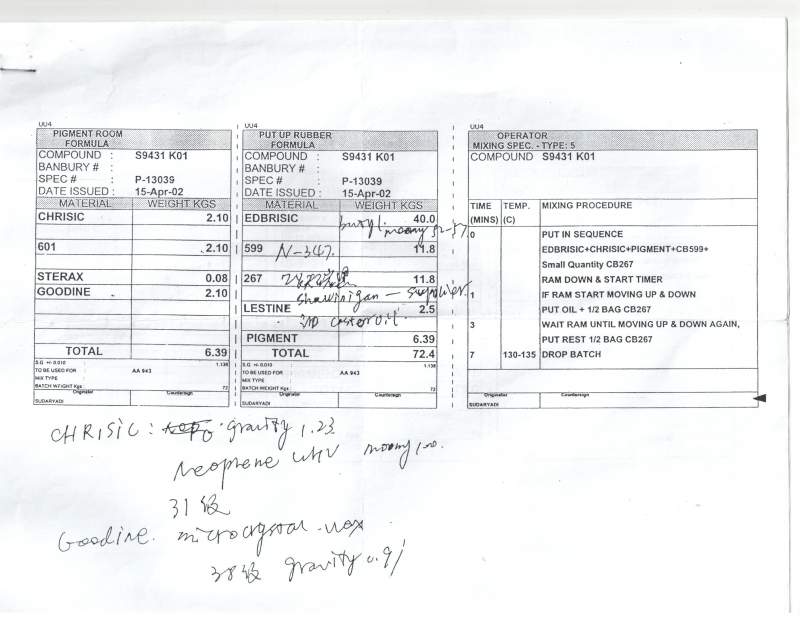 UU4
PIGMENT ROOM
FORMULA
COMPOUND : S9431 K01
BANBURY # :
SPEC # : P-13039
DATE ISSUED : 15-Apr-02
MATERIAL WEIGHT KGS
CHRISIC 2.10
601 2.10
STERAX 0.08
GOODINE 2.10
TOTAL 6.39
S.G. +/- 0.010 1.138
TO BE USED FOR : AA 943
MIX TYPE
BATCH WEIGHT Kgs : 72
Originator Countersign
SUDARYADI
UU4
PUT UP RUBBER
FORMULA
COMPOUND : S9431 K01
BANBURY # :
SPEC # : P-13039
DATE ISSUED : 15-Apr-02
MATERIAL WEIGHT KGS
EDBRISIC 40.0
butyl moony 52-57
599 N-347 11.8
267 11.8
Shawinigan — supplier
LESTINE 2.5
caster oil
PIGMENT 6.39
TOTAL 72.4
S.G. +/- 0.010 1.138
TO BE USED FOR : AA 943
MIX TYPE
BATCH WEIGHT Kgs : 72
Originator Countersign
SUDARYADI
UU4
OPERATOR
MIXING SPEC. - TYPE: 5
COMPOUND S9431 K01
TIME TEMP. MIXING PROCEDURE
(MINS) (C)
0 PUT IN SEQUENCE
EDBRISIC+CHRISIC+PIGMENT+CB599+
Small Quantity CB267
RAM DOWN & START TIMER
1 IF RAM START MOVING UP & DOWN
PUT OIL + 1/2 BAG CB267
3 WAIT RAM UNTIL MOVING UP & DOWN AGAIN,
PUT REST 1/2 BAG CB267
7 130-135 DROP BATCH
Originator Countersign
SUDARYADI
CHRISIC : gravity 1.23
Neoprene WHV moony 100.
31级
Goodine. microcrystal wax
38级 gravity 0.91